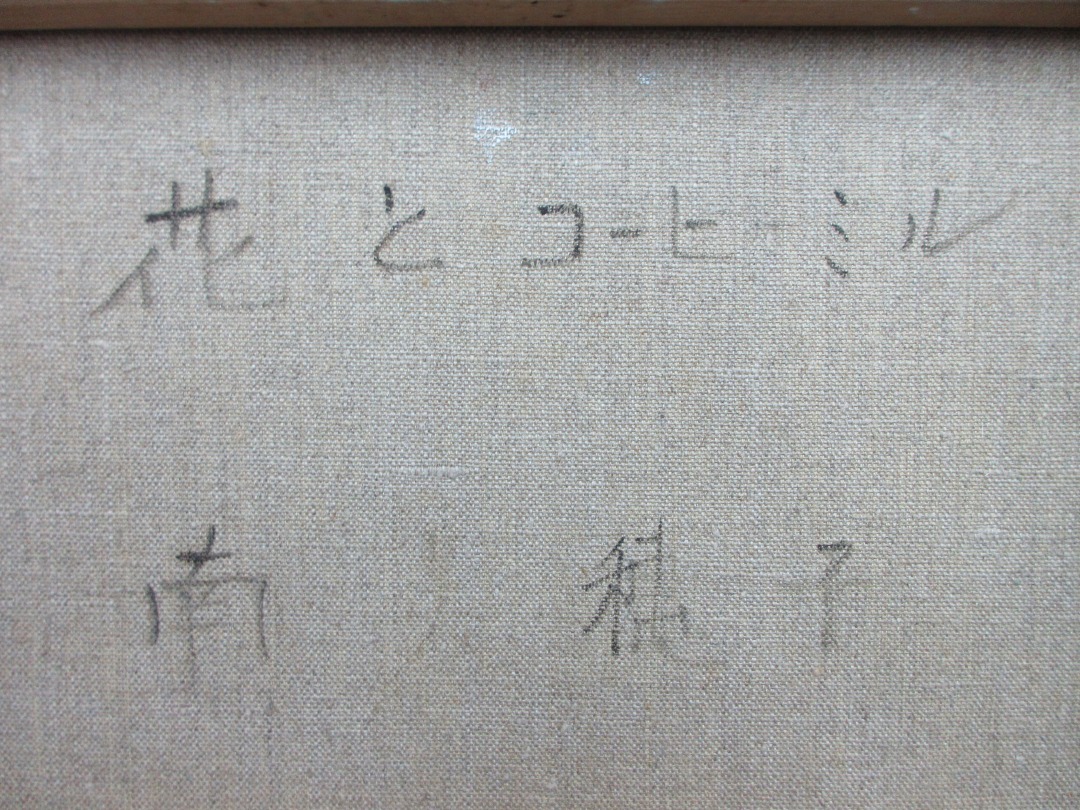 花とコーヒーミル
南 穂子